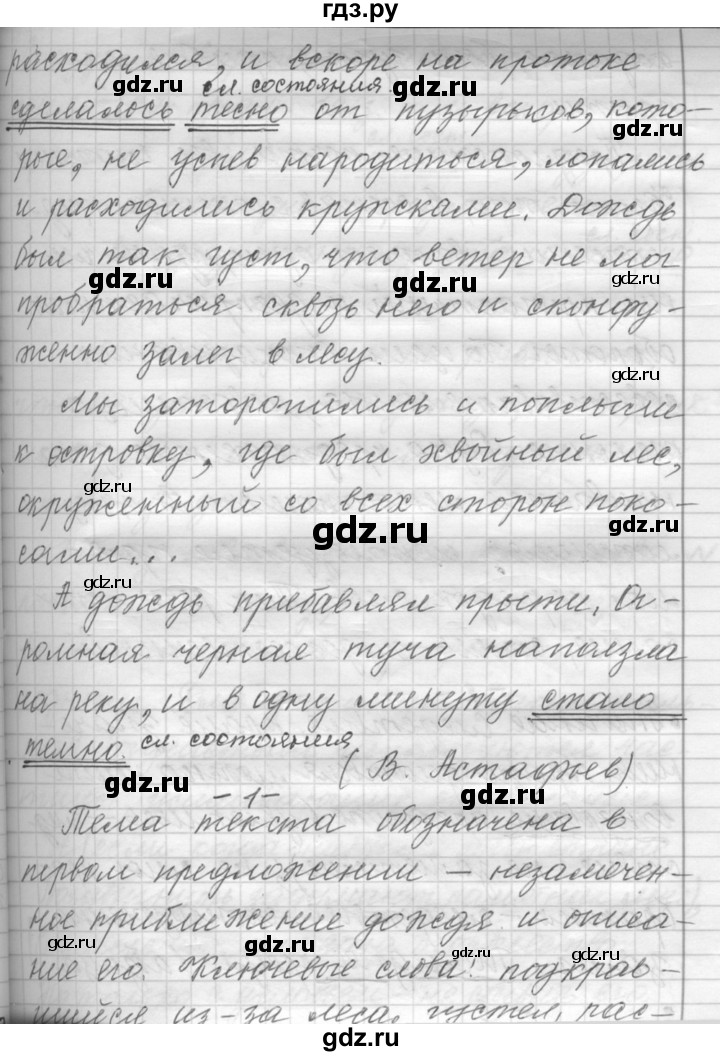 гдз.ру
расходился, и вскоре на протоке
gdz.ru сл. состояния gdz.ru
сделалось тесно от пузырьков, кото-
gdz.ru
рые, не успев народиться, лопались
и расходились кружками. Дождь
был так густ, что ветер не мог
gdz.ru gdz.ru gdz.ru
пробраться сквозь него и сконфу-
женно залег в лесу.
gdz.ru
Мы заторопились и поплыли
к островку, где был хвойный лес,
gdz.ru
окруженный со всех сторон поко-
gdz.ru gdz.ru
сами...
gdz.ru
А дождь прибавлял прыти. Ог-
gdz.ru
ромная черная туча наползла
на реку, и в одну минуту стало
gdz.ru gdz.ru
темно. сл. состояния
(В. Астафьев)
gdz.ru gdz.ru
-1-
Тема текста обозначена в
первом предложении – незамечен-
ное приближение дождя и описа-
gdz.ru gdz.ru gdz.ru gdz.ru
ние его. Ключевые слова: подкрав-
шийся из-за леса, густел, рас-
gdz.ru